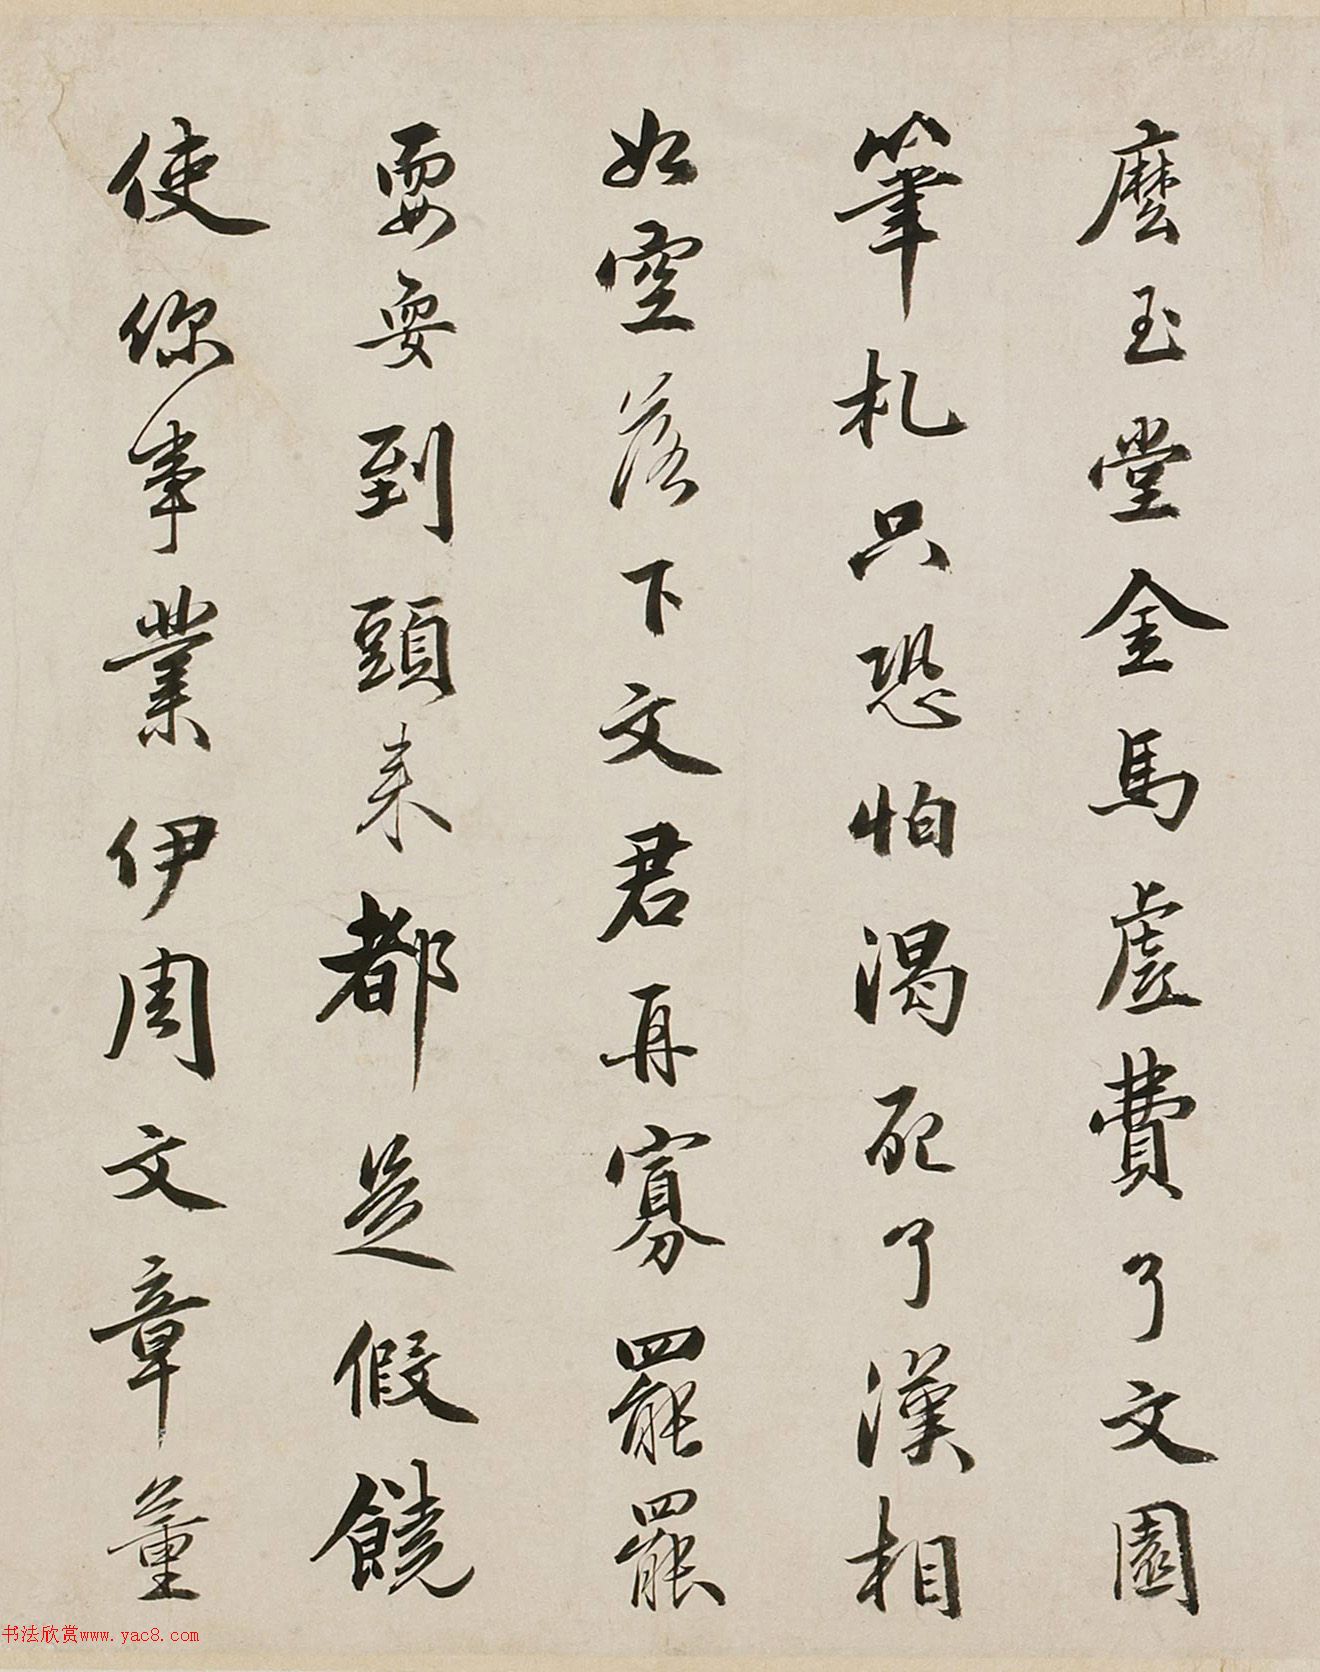 麼玉堂金馬虛費了文園
筆札只恐怕渴死了漢相
如空落下文君再寡罷罷
耍耍到頭來都是假饒
使你事業伊周文章董
书法欣赏www.yac8.com